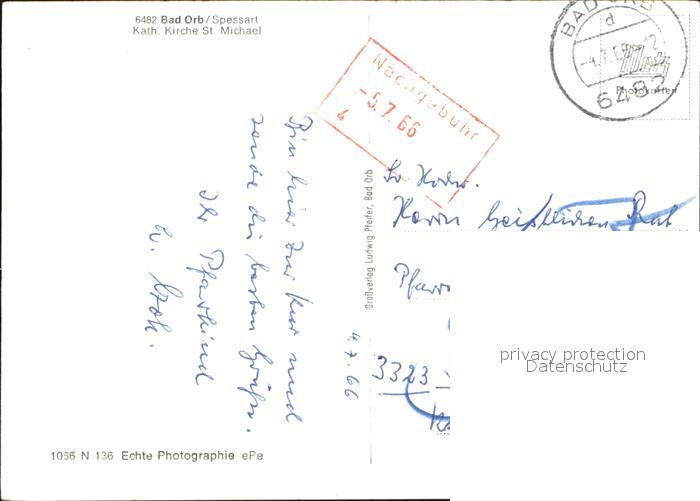 6482 Bad Orb/Spessart
Kath. Kirche St. Michael
BAD ORB
d
-4.7.66-12
6482
Photokarten
Nachgebühr
-5.7.66
4
4.7.66
Bin hier zur Kur und
sende die besten Grüße.
Ihr Pfarrkind
Großverlag Ludwig Pfeifer, Bad Orb
Sr Hochw.
Herrn Geistlichen Rat
Pfarr
3323
privacy protection
Datenschutz
1066 N 136 Echte Photographie ePe